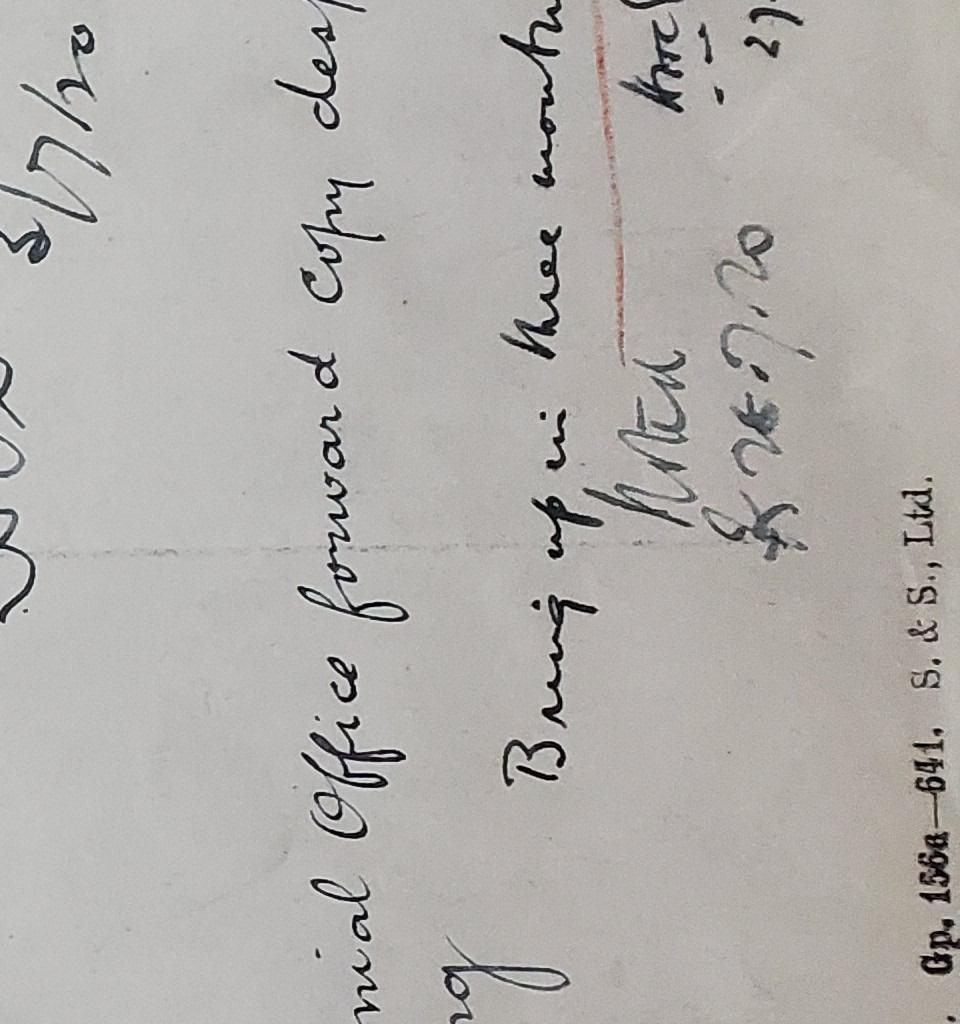 3/7/20
nial Office forward copy desp
ng
Bring up in three month
Noted
28.7.20
27
Gp. 156a—641. S. & S., Ltd.